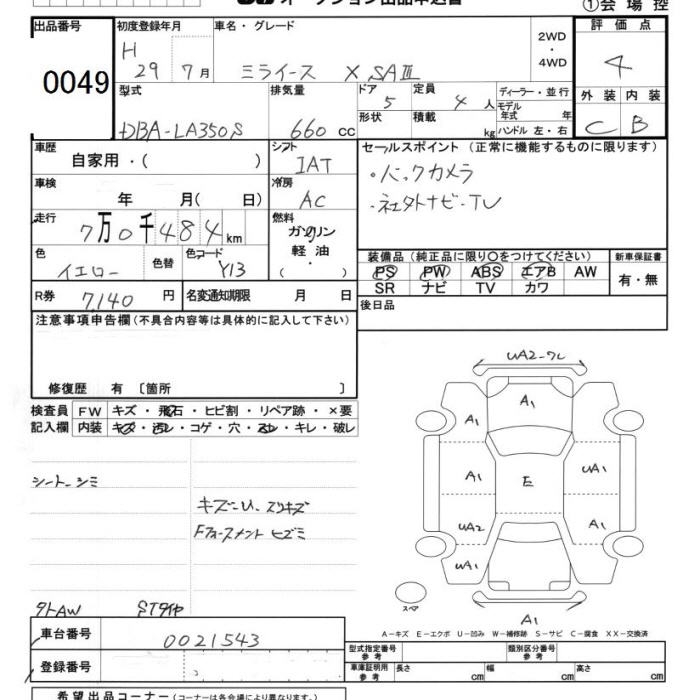 ①会場控
出品番号 初度登録年月 車名・グレード 2WD ・ 4WD 評価点
0049 H 29 7月 ミライース X SAⅢ 4
型式 排気量 ドア 5 定員 4人 ディーラー・並行 外装 内装
形状 積載 kg モデル年式 年
DBA-LA350S 660cc ハンドル 左・右 C B
車歴 自家用・( ) シフト IAT セールスポイント (正常に機能するものに限ります)
車検 年 月( 日) 冷房 AC ・バックカメラ
・社外ナビ・TV
走行 7万0千484km 燃料 ガソリン 軽油 ・( )
色 イエロー 色替 色コード Y13
装備品 (純正品に限り○をつけてください) 新車保証書
PS PW ABS エアB AW 有・無
SR ナビ TV カワ
R券 7,140円 名変通知期限 月 日 後日品
注意事項申告欄 (不具合内容等は具体的に記入して下さい)
修復歴 有 〔箇所 〕
検査員 FW キズ・飛石・ヒビ割・リペア跡・×要
記入欄 内装 キズ・汚レ・コゲ・穴・スレ・キレ・破レ
シートシミ
キズ・U・スリキズ
ヒズミ
UA2-ワレ
A1
A1 A1
A1 E UA1
UA2 A1
UA1
A1
スペア
A-キズ E-エクボ U-凹み W-補修跡 S-サビ C-腐食 XX-交換済
車台番号 0021543
登録番号
型式指定番号 参考 類別区分番号 参考
車庫証明用 参考 長さ cm 幅 cm 高さ cm
希望出品コーナー (コーナーは各会場により異なります)